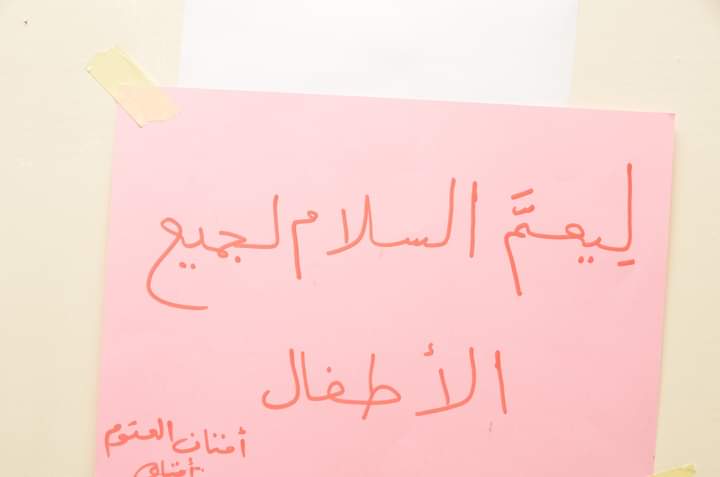 لِيعمَّ السلام لجميع
الأطفال
أفنان العتوم